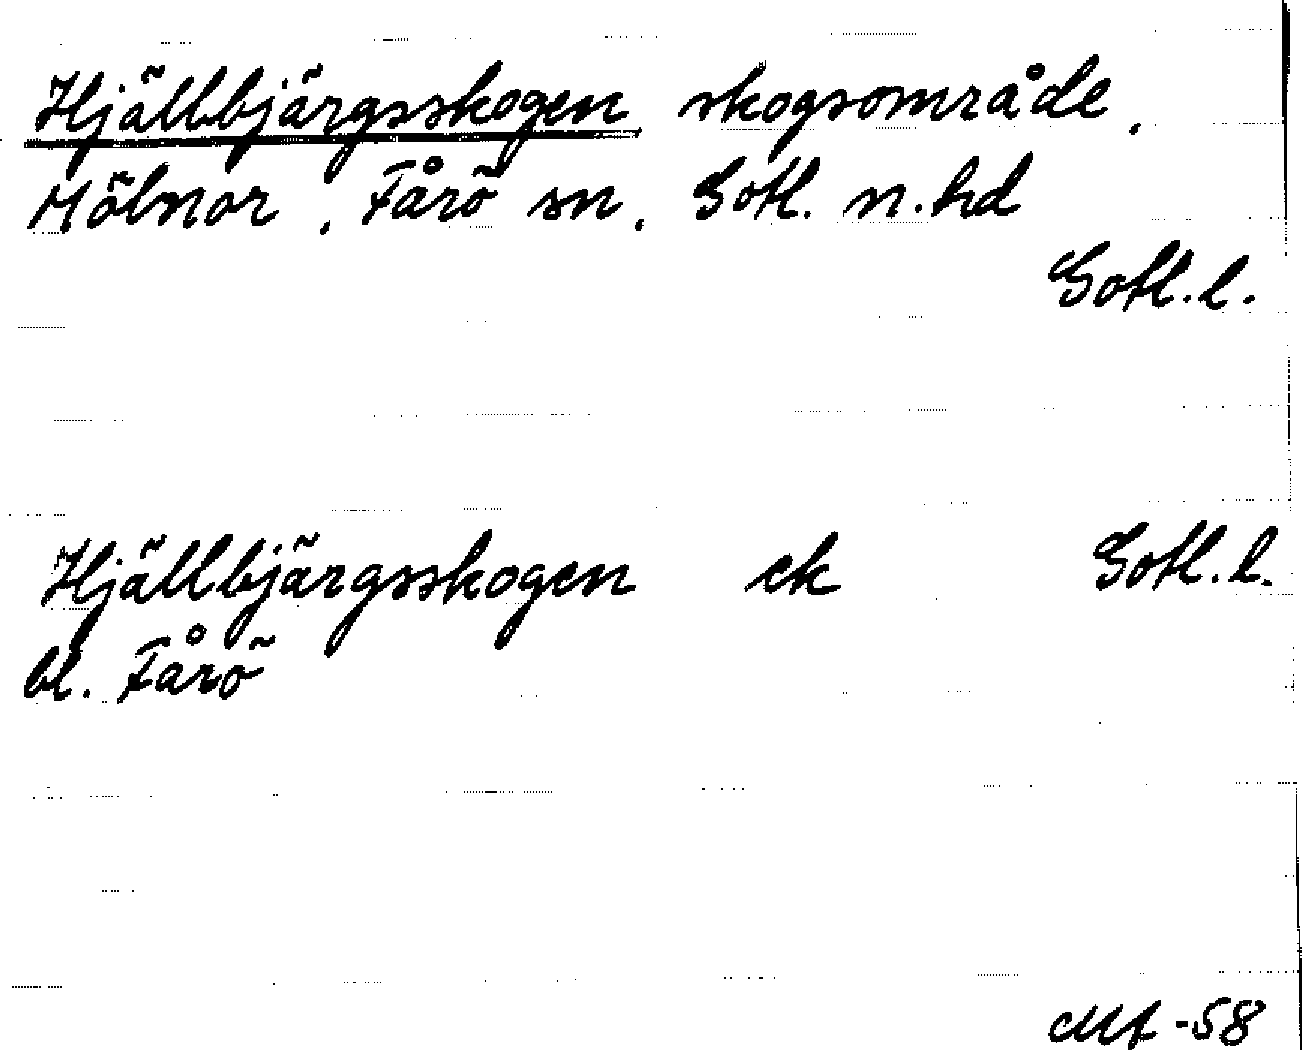 Hjällbjärgsskogen skogsområde,
Mölnor, Fårö sn, Gotl. n. hd
Gotl. l.
Hjällbjärgsskogen ek Gotl. l.
bl. Fårö
-58